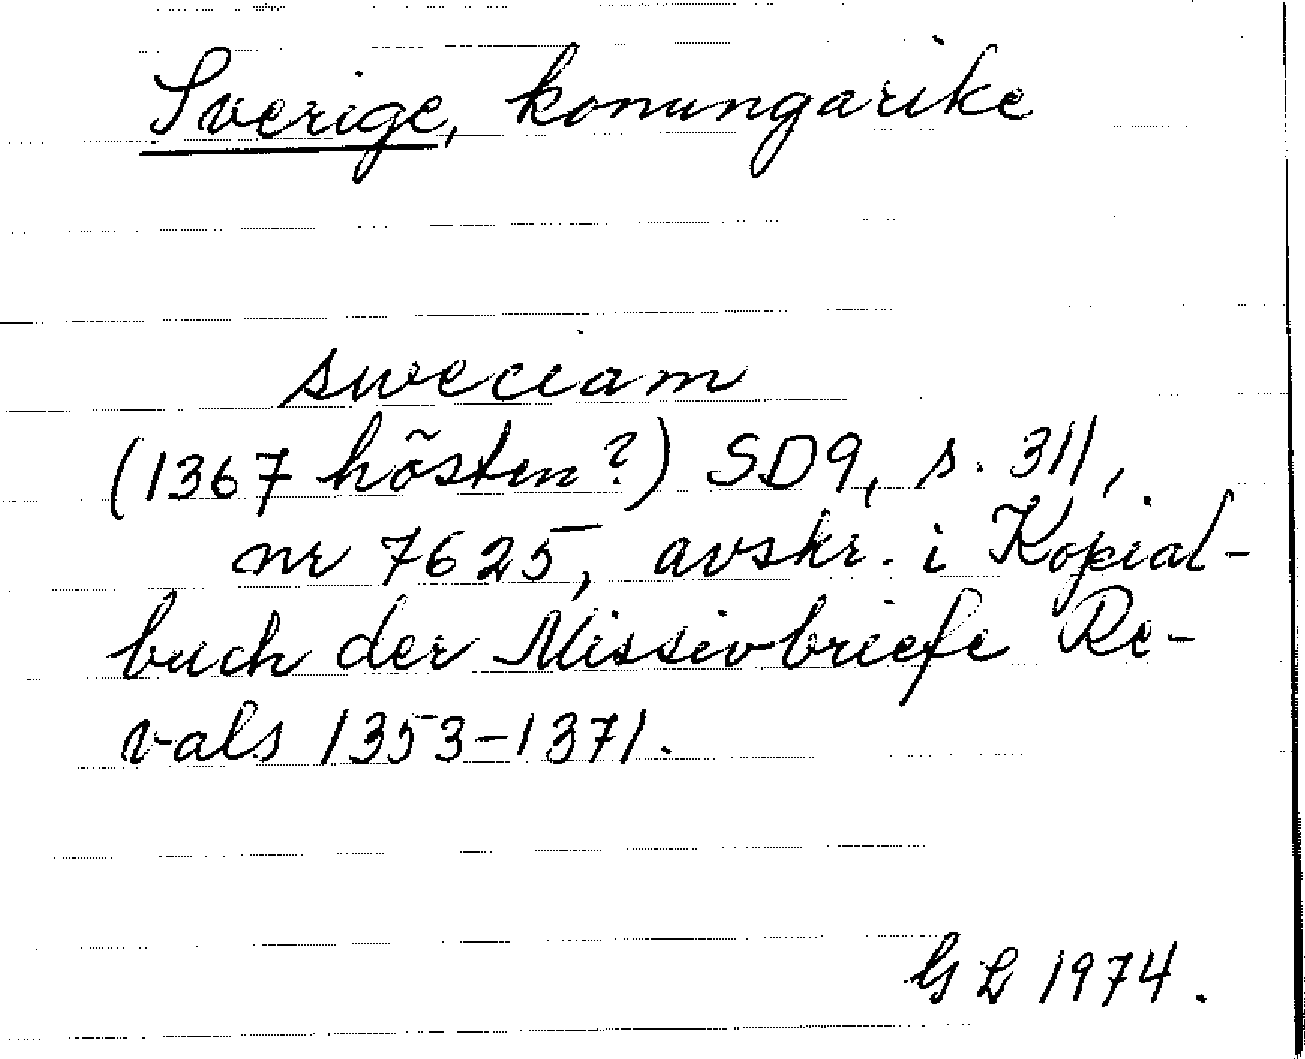 Sverige, konungarike
sweciam
(1367 hösten?) SD9, s. 311,
nr 7625, avskr. i Kopial-
buch der Missivbriefe Re-
vals 1353-1371.
GL 1974.